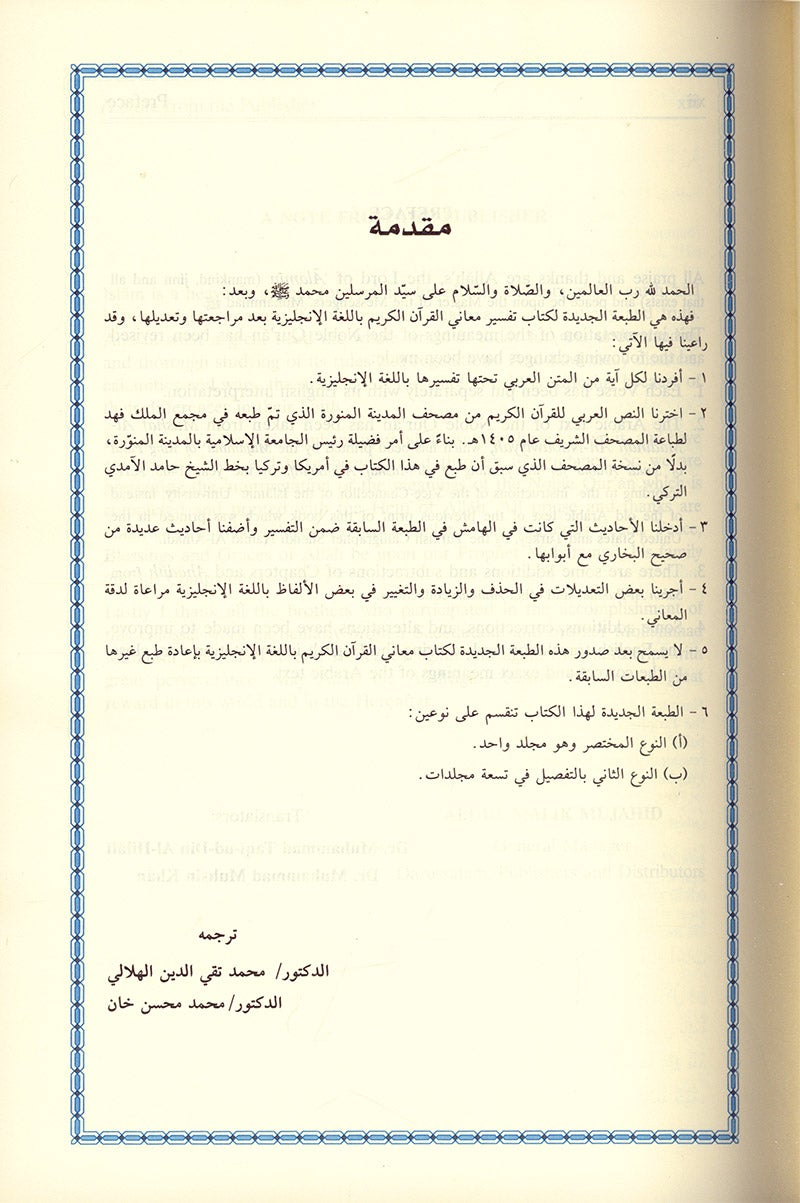 مقدمة
الحمد لله رب العالمين، والصّلاة والسّلام على سيّد المرسلين محمد ﷺ، وبعد:
فهذه هي الطبعة الجديدة لكتاب تفسير معاني القرآن الكريم باللغة الإنجليزية بعد مراجعتها وتعديلها، وقد
راعينا فيها الآتي:
١ - أفردنا لكل آية من المتن العربي تحتها تفسيرها باللغة الإنجليزية.
٢ - اخترنا النص العربي للقرآن الكريم من مصحف المدينة المنورة الذي تمّ طبعه في مجمع الملك فهد
لطباعة المصحف الشريف عام ١٤٠٥هـ. بناءً على أمر فضيلة رئيس الجامعة الإسلامية بالمدينة المنوّرة،
بدلًا من نسخة المصحف الذي سبق أن طبع في هذا الكتاب في أمريكا وتركيا بخط الشيخ حامد الآمدي
التركي.
٣ - أدخلنا الأحاديث التي كانت في الهامش في الطبعة السابقة ضمن التفسير وأضفنا أحاديث عديدة من
صحيح البخاري مع أبوابها.
٤ - أجرينا بعض التعديلات في الحذف والزيادة والتغيير في بعض الألفاظ باللغة الإنجليزية مراعاة لدقة
المعاني.
٥ - لا يسمح بعد صدور هذه الطبعة الجديدة لكتاب معاني القرآن الكريم باللغة الإنجليزية بإعادة طبع غيرها
من الطبعات السابقة.
٦ - الطبعة الجديدة لهذا الكتاب تنقسم على نوعين:
(أ) النوع المختصر وهو مجلد واحد.
(ب) النوع الثاني بالتفصيل في تسعة مجلدات.
ترجمه
الدكتور/ محمد تقي الدين الهلالي
الدكتور/ محمد محسن خان